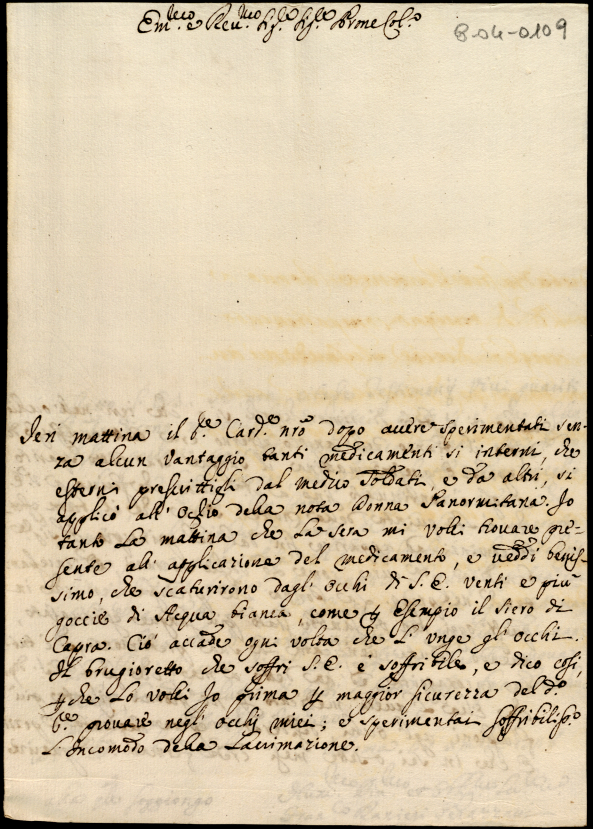 Em.mo e Rev.mo Sig.re Sig.re Prone Col.mo
B-04-0109
Ieri mattina il S.r Card.e nrõ dopo avere sperimentati sen-
za alcun vantaggio tanti medicamenti si interni, che
esterni prescrittigli dal medico Soldati, e da altri, si
applicò all' Ochio della nota Donna Panormitana. Io
tanto La mattina che La sera mi volli trovare pre-
sente all' applicazione del medicamento, e veddi benis-
simo, che scaturirono dagl' occhi di S. E. venti e più
goccie di Acqua bianca, come p Esempio il siero di
Capra. Ciò accade ogni volta che L' unge gl' occhi.
Il brugioretto che soffrì S. E. è soffribile, e dico così,
pche Lo volli Io prima p maggior sicurezza del d.o
provare negl' occhi miei; e sperimentai soffribiliss.o
L' Incomodo della Lacrimazione.